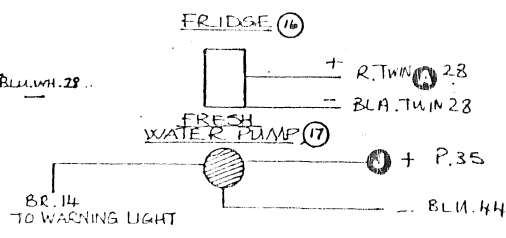 FRIDGE 16
+ R.TWIN A 28
BLU.WH.28..
- BLA.TWIN 28
FRESH
WATER PUMP 17
+ P.35
BR.14
TO WARNING LIGHT
- BLU.44